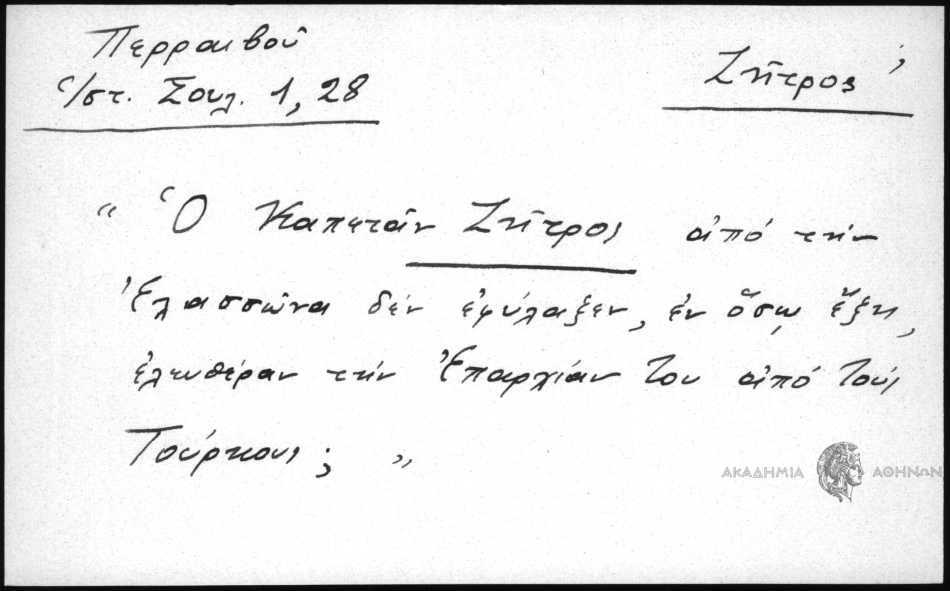 Περραιβοῦ
Ἱστ. Σουλ. 1, 28
Ζῆτρος,
“ Ὁ Καπετὰν Ζῆτρος ἀπό τήν
Ἐλασσῶνα δέν ἐφύλαξεν, ἐν ὅσῳ ἔζη,
ἐλευθέραν τήν Ἐπαρχίαν του ἀπό τούς
Τούρκους; ”
ΑΚΑΔΗΜΙΑ ΑΘΗΝΩΝ